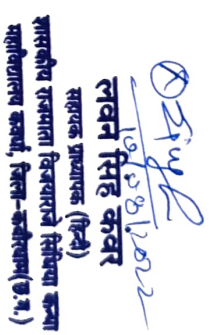 19/08/2022
लवन सिंह कंवर
सहायक प्राध्यापक (हिन्दी)
शासकीय राजमाता विजयाराजे सिंधिया कन्या
महाविद्यालय कवर्धा, जिला-कबीरधाम (छ.ग.)